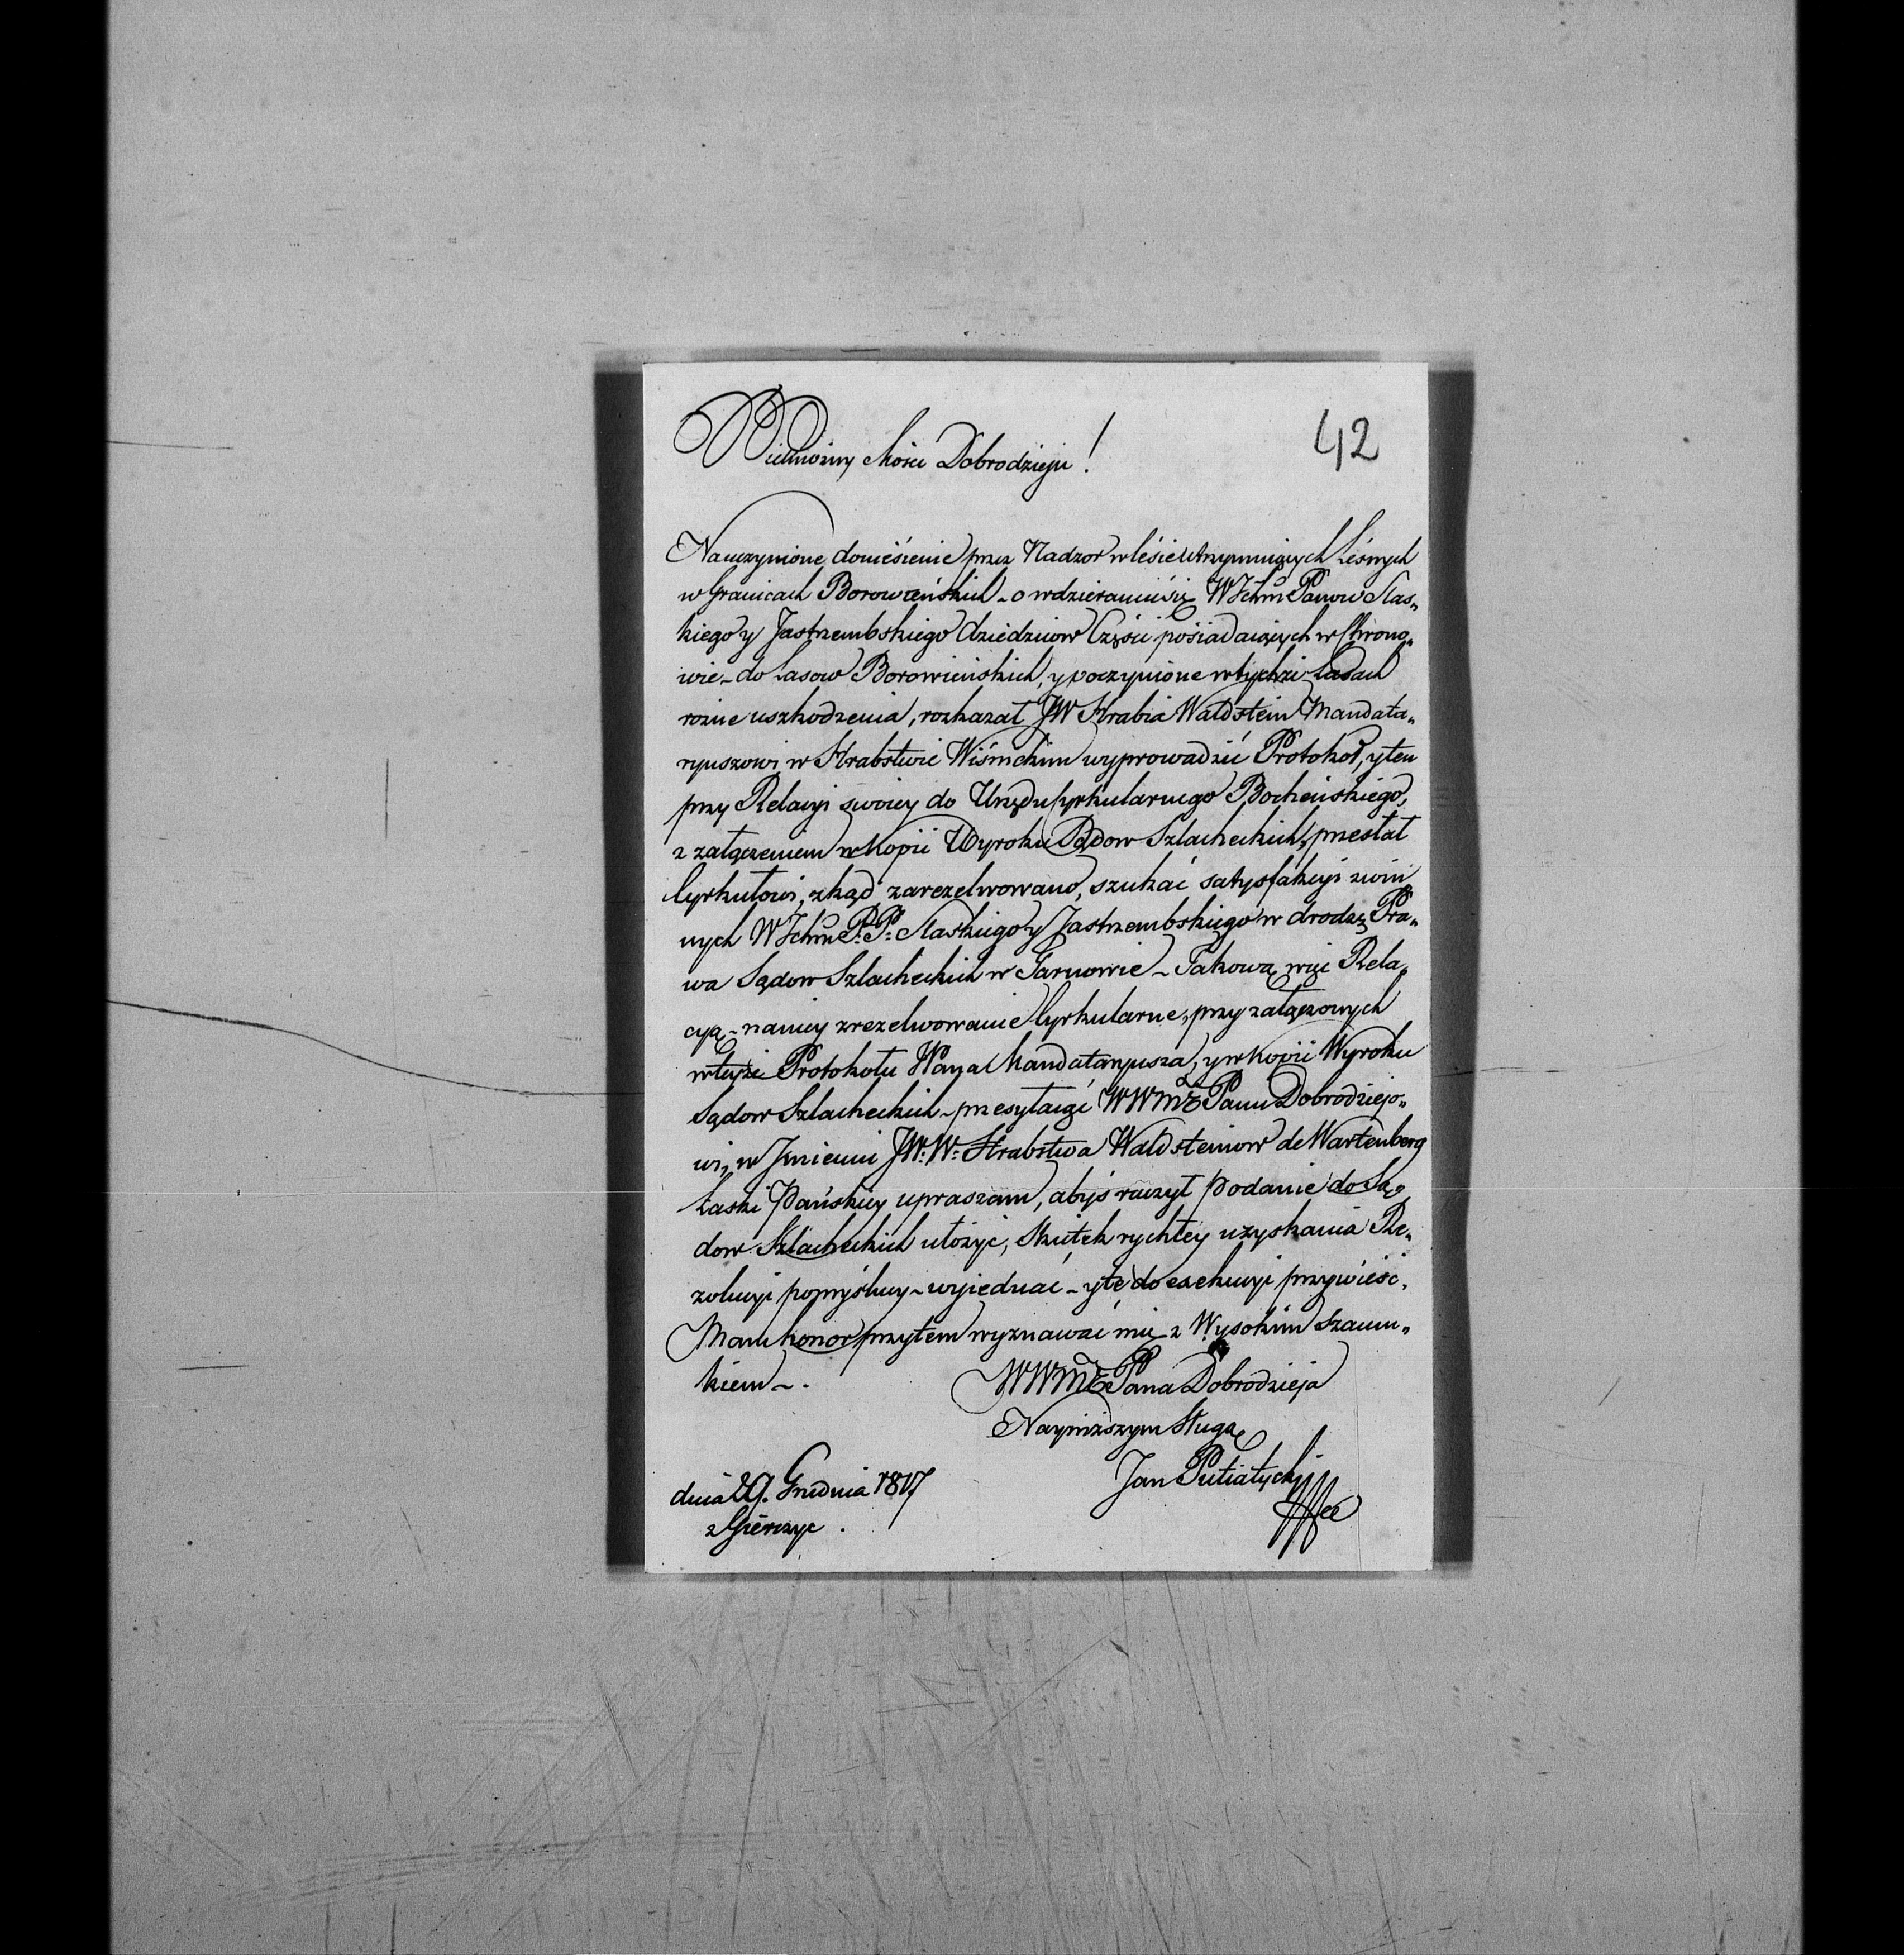 Wielmożny Mości Dobrodzieju!
42
Na uczynione doniesienie przez Nadzor w lesie utrzymuiących Leśnych
w Granicach Borowieńskich - o wdzieraniu się WJchm Panow Slas„
kiego y Jastrzembskiego dziedzicow Części posiadaiących w Chrono„
wie - do Lasow Borowieńskich, y poczynione w tychże Lasach
rożne uszkodzenia, rozkazał JW Hrabia Waldstein Mandata„
ryuszowi w Hrabstwie Wiśnickim wyprowadzić Protokoł, y ten
przy Relacyi swoiey do Urzędu Cyrkularnego Bocheńskiego,
z załączeniem w Kopii Wyroku Sądow Szlacheckich, przesłał
Cyrkułowi, zkąd zarezelwowano, szukać satysfakcyi z win
nych WJchm P: P: Slaskiego y Jastrzembskiego w drodze Pra„
wa Sądow Szlacheckich w Tarnowie - Takową więc Rela„
cyą - na niey zrezelwowanie Cyrkularne, przy załączonych
w teyże Protokołu Mandataryusza, y w Kopii Wyroku
Sądow Szlacheckich - przesyłaiąc WWMć Panu Dobrodziejo„
wi, w Jmieniu JW: W: Hrabstwa Waldsteinow de Wartenberg
Łaski Pańskiey upraszam, abyś raczył podanie do Są„
dow Szlacheckich ułożyć, Skutek rychłey uzyskania Re„
zolucyi pomyślney - wyjednać - y tę do exekucyi przywieść.
Mam honor przytem wyznawać mię z Wysokim Szacun„
kiem -.
WWMć Pana Dobrodzieja
Nayniższym Sługą
Jan Putiatycki
dnia 29. Grudnia 1817
z Gierczyc.